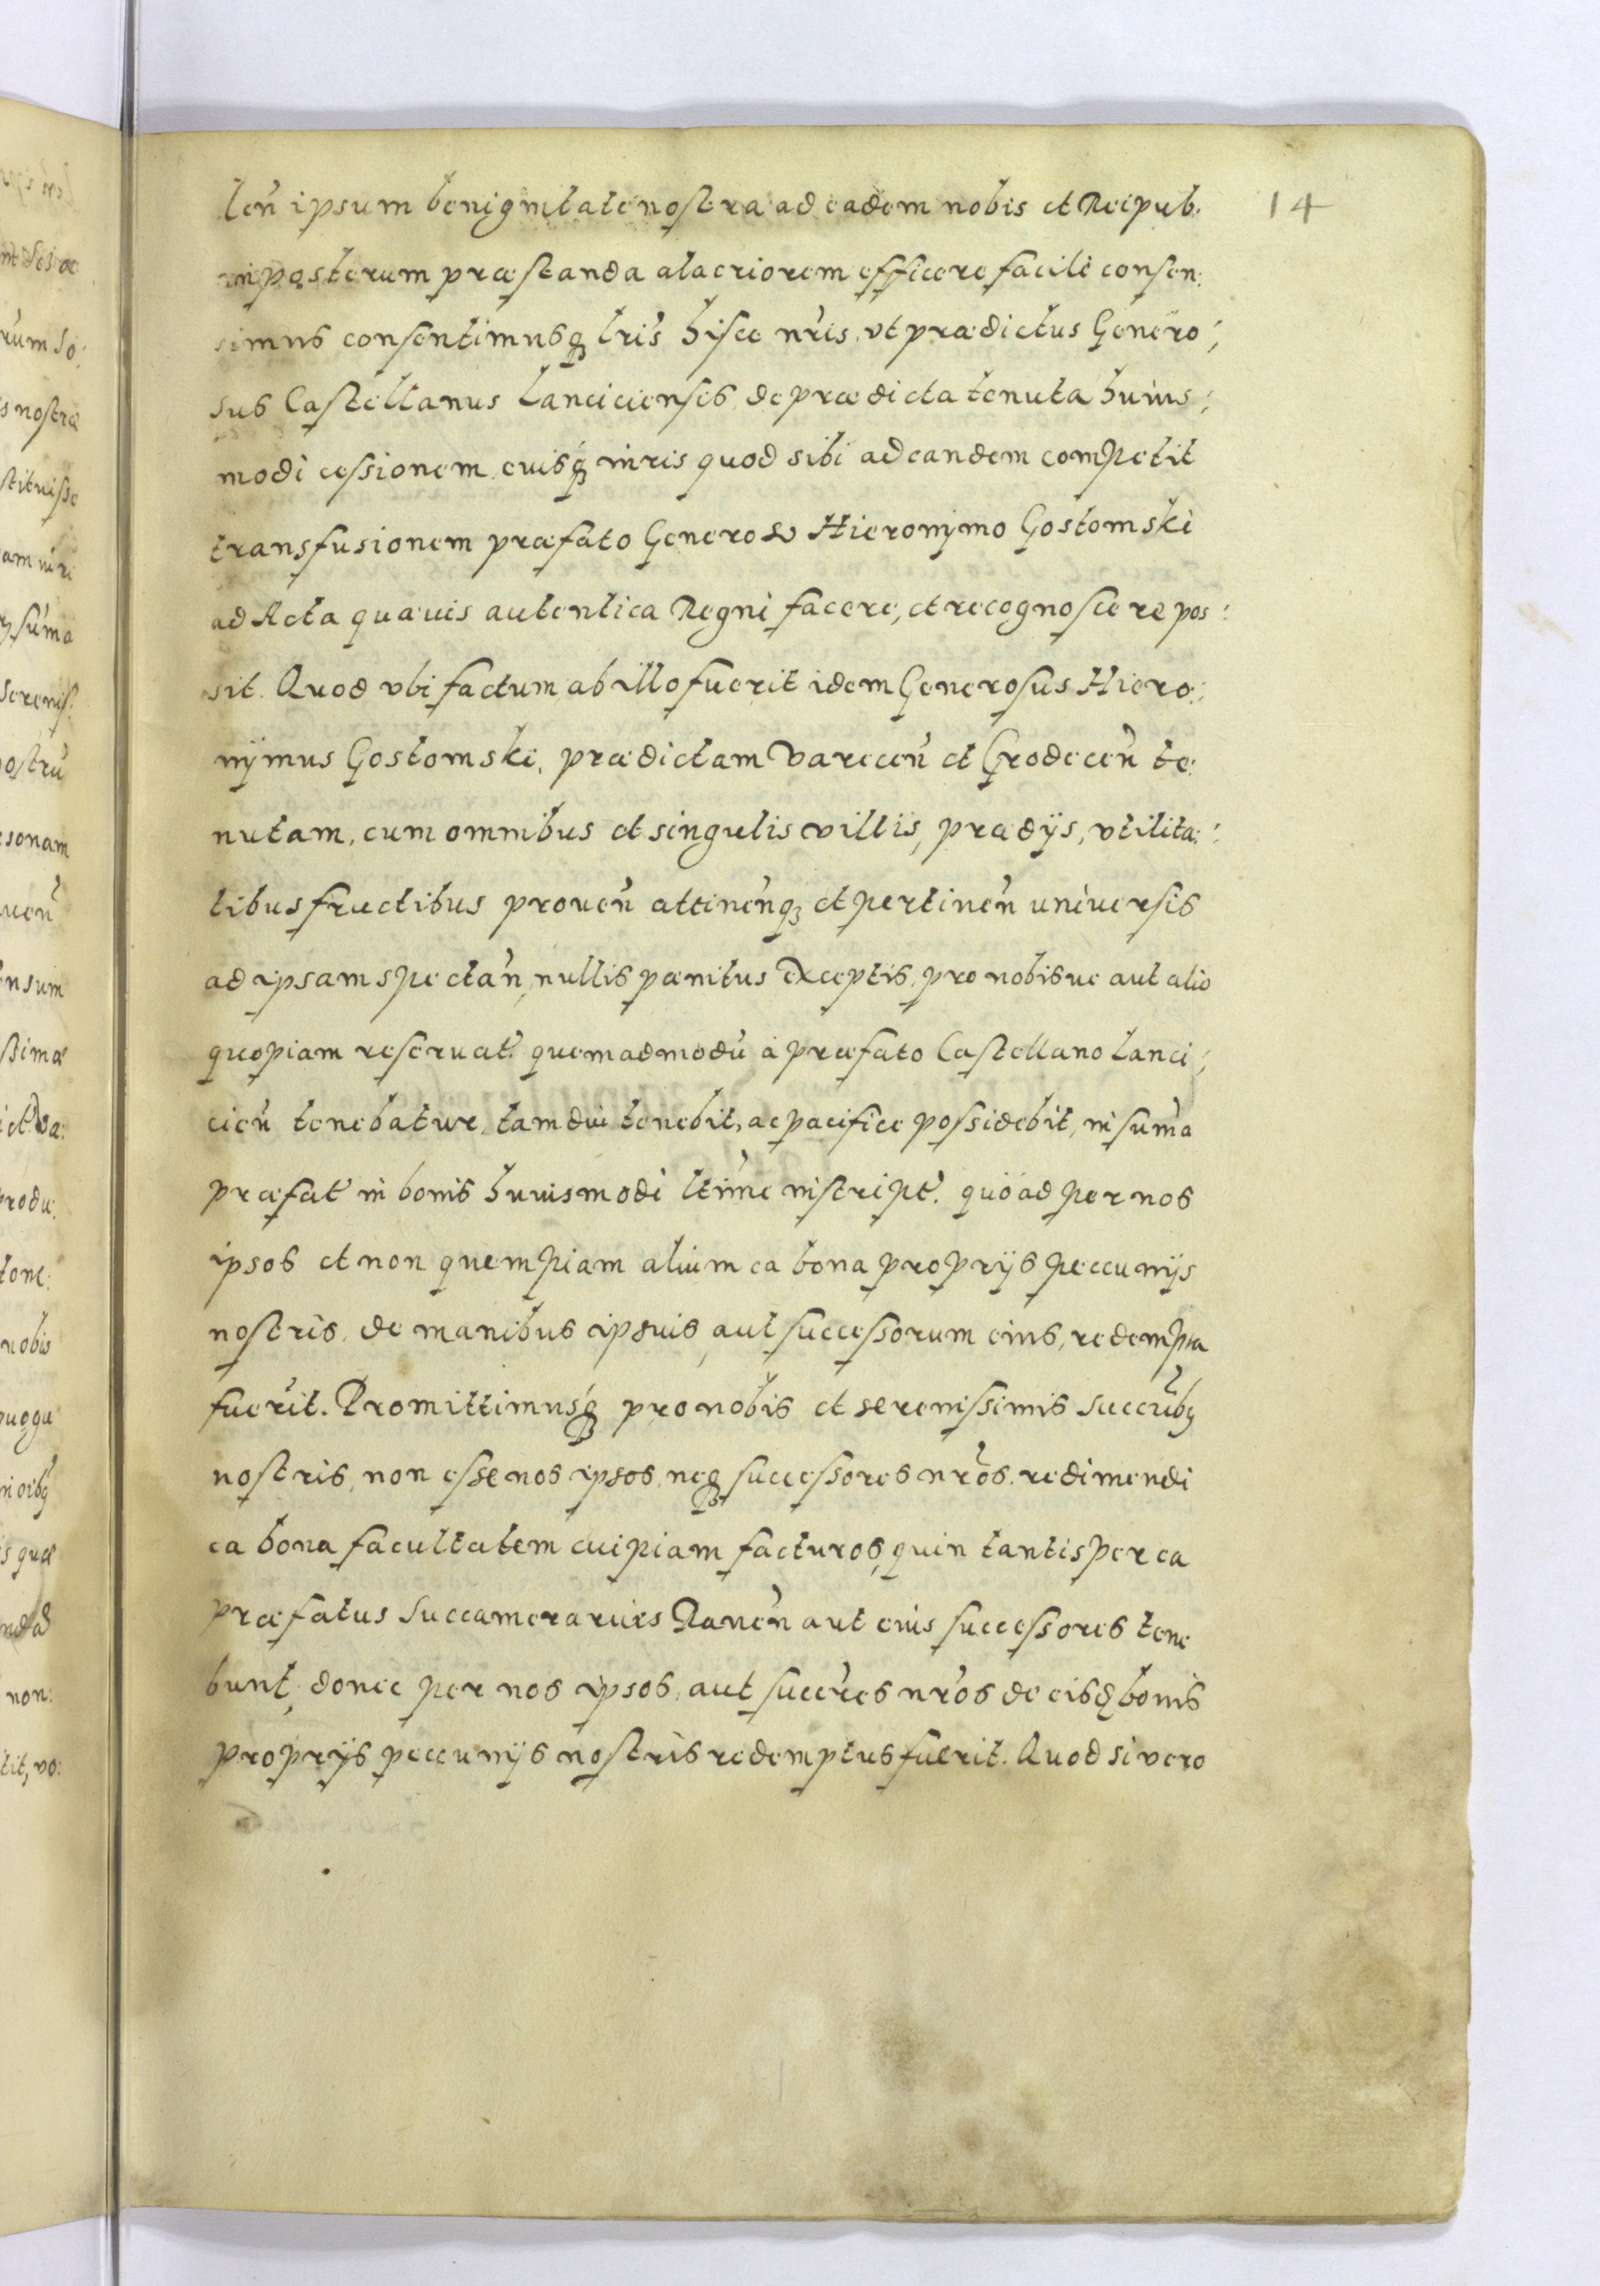 14
len̄ ipsum benignitate nostra ad eadem nobis et Reipub.
in posterum præstanda alacriorem efficere facile consen:
simus consentimusq₃ lr̃is hisce nr̃is, vt prædictus Genero:
sus Castellanus Lanciciensis de prædicta tenuta huius:
modi cessionem eiusq₃ iuris quod sibi ad eandem competit
transfusionem præfato Generoso Hieronymo Gostomski
ad Acta quævis autentica Regni facere, et recognoscere pos:
sit. Quod vbi factum ab illo fuerit idem Generosus Hiero:
nymus Gostomski, prædictam Varecen̄ et Grodecen̄ te:
nutam, cum omnibus et singulis villis, prædijs, vtilita:
tibus fructibus proven̄ attinen̄q₃ et pertinen̄ universis
ad ipsam spectan̄, nullis pænitus exceptis, pro nobisve aut alio
quopiam reservat̄. quemadmodū à præfato Castellano Lanci:
cien̄ tenebatur, tamdiu tenebit, ac pacifice possidebit, in sum̄a
præfat̄ in bonis huiusmodi ltīme inscript̄. quoad per nos
ipsos et non quempiam alium ea bona proprijs peccunijs
nostris, de manibus ipsius, aut successorum eius, redempta
fuerit. Promittimusq₃ pro nobis et serenissimis Succrībq₃
nostris, non esse nos ipsos, neq₃ successores nr̃os, redimendi
ea bona facultatem cuipiam facturos, quin tantisper ea
præfatus Succamerarius Raven̄ aut eius successores tene
bunt, donec per nos ipsos, aut succr̃es nr̃os de eisd. bonis
proprijs peccunijs nostris redemptus fuerit. Quod si vero